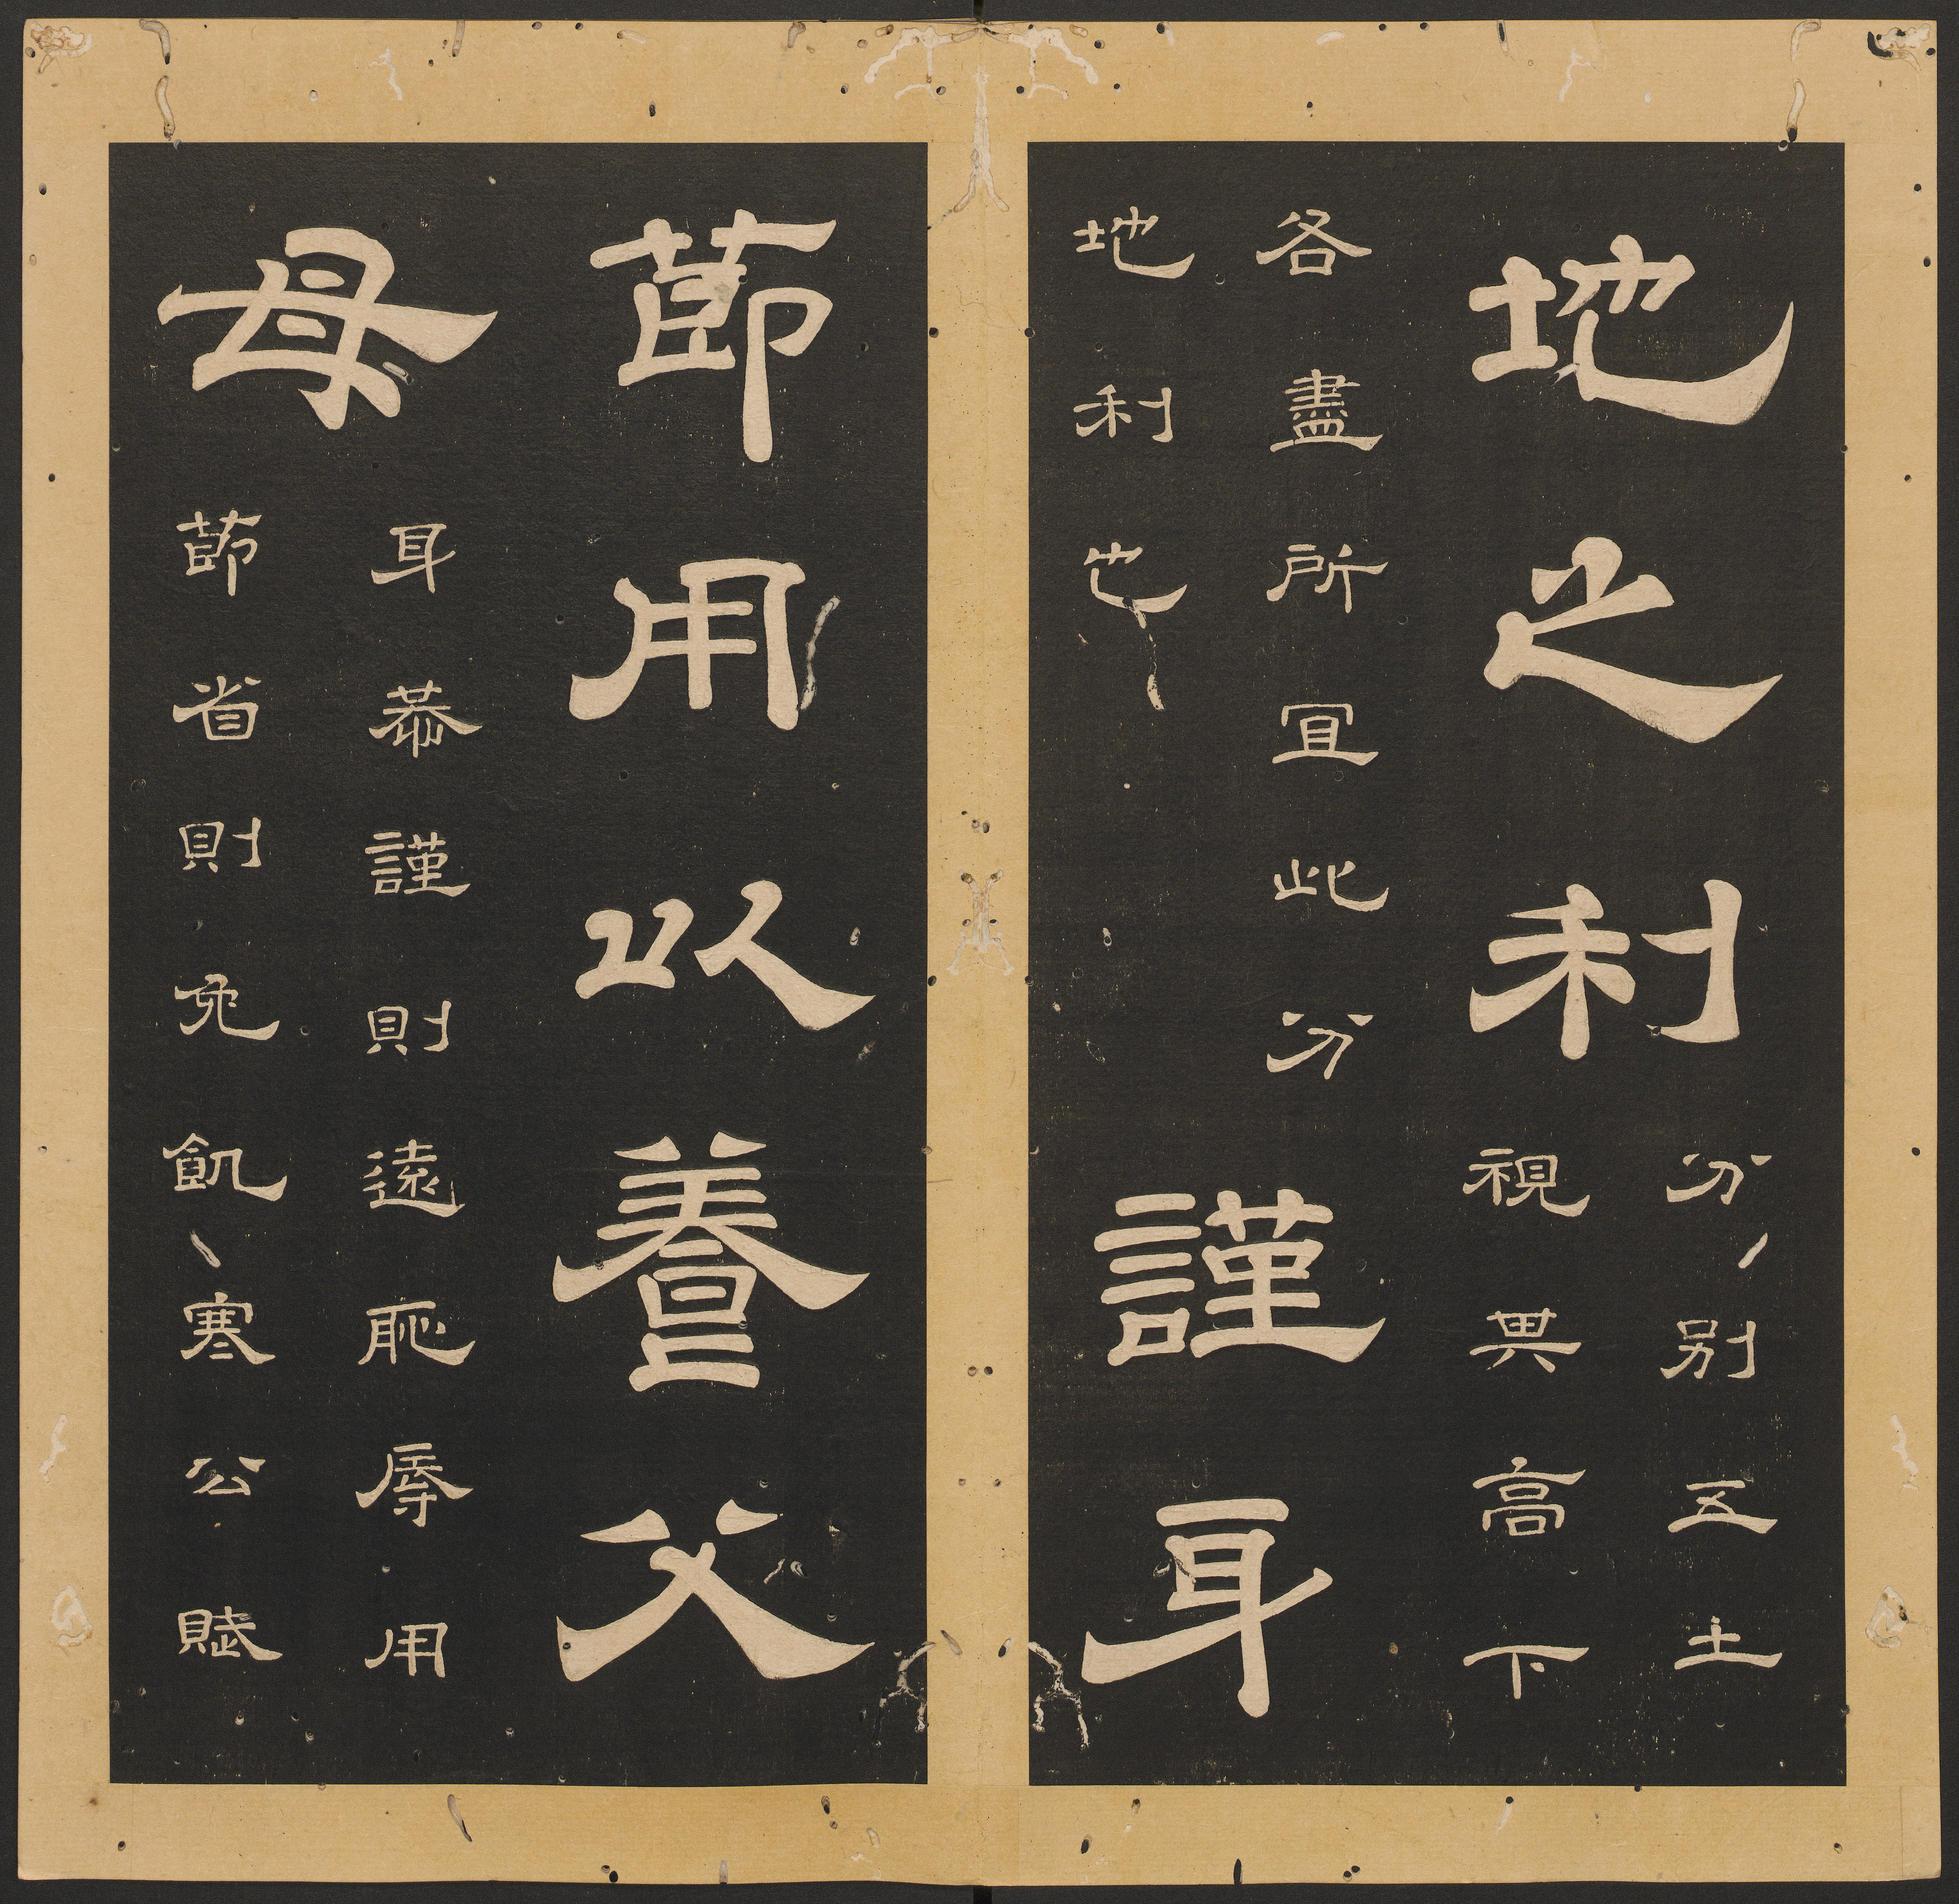 地之利
分別五土
視其高下
各盡所宜此分
地利也
謹身
節用以養父
母
身恭謹則遠恥辱用
節省則免飢寒公賦